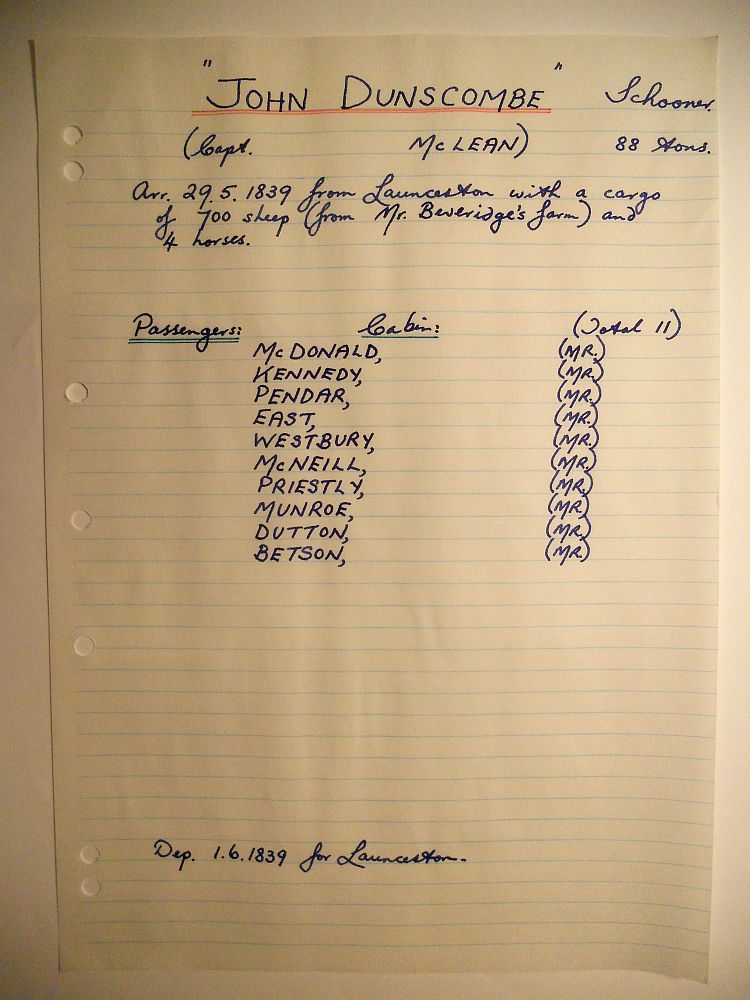 "JOHN DUNSCOMBE" Schooner.
(Capt. McLEAN) 88 tons.
Arr. 29.5.1839 from Launceston with a cargo
of 700 sheep (from Mr. Beveridge's farm) and
4 horses.
Passengers: Cabin: (Total 11)
McDONALD, (MR.)
KENNEDY, (MR.)
PENDAR, (MR.)
EAST, (MR.)
WESTBURY, (MR.)
McNEILL, (MR.)
PRIESTLY, (MR.)
MUNROE, (MR.)
DUTTON, (MR.)
BETSON, (MR.)
Dep. 1.6.1839 for Launceston.